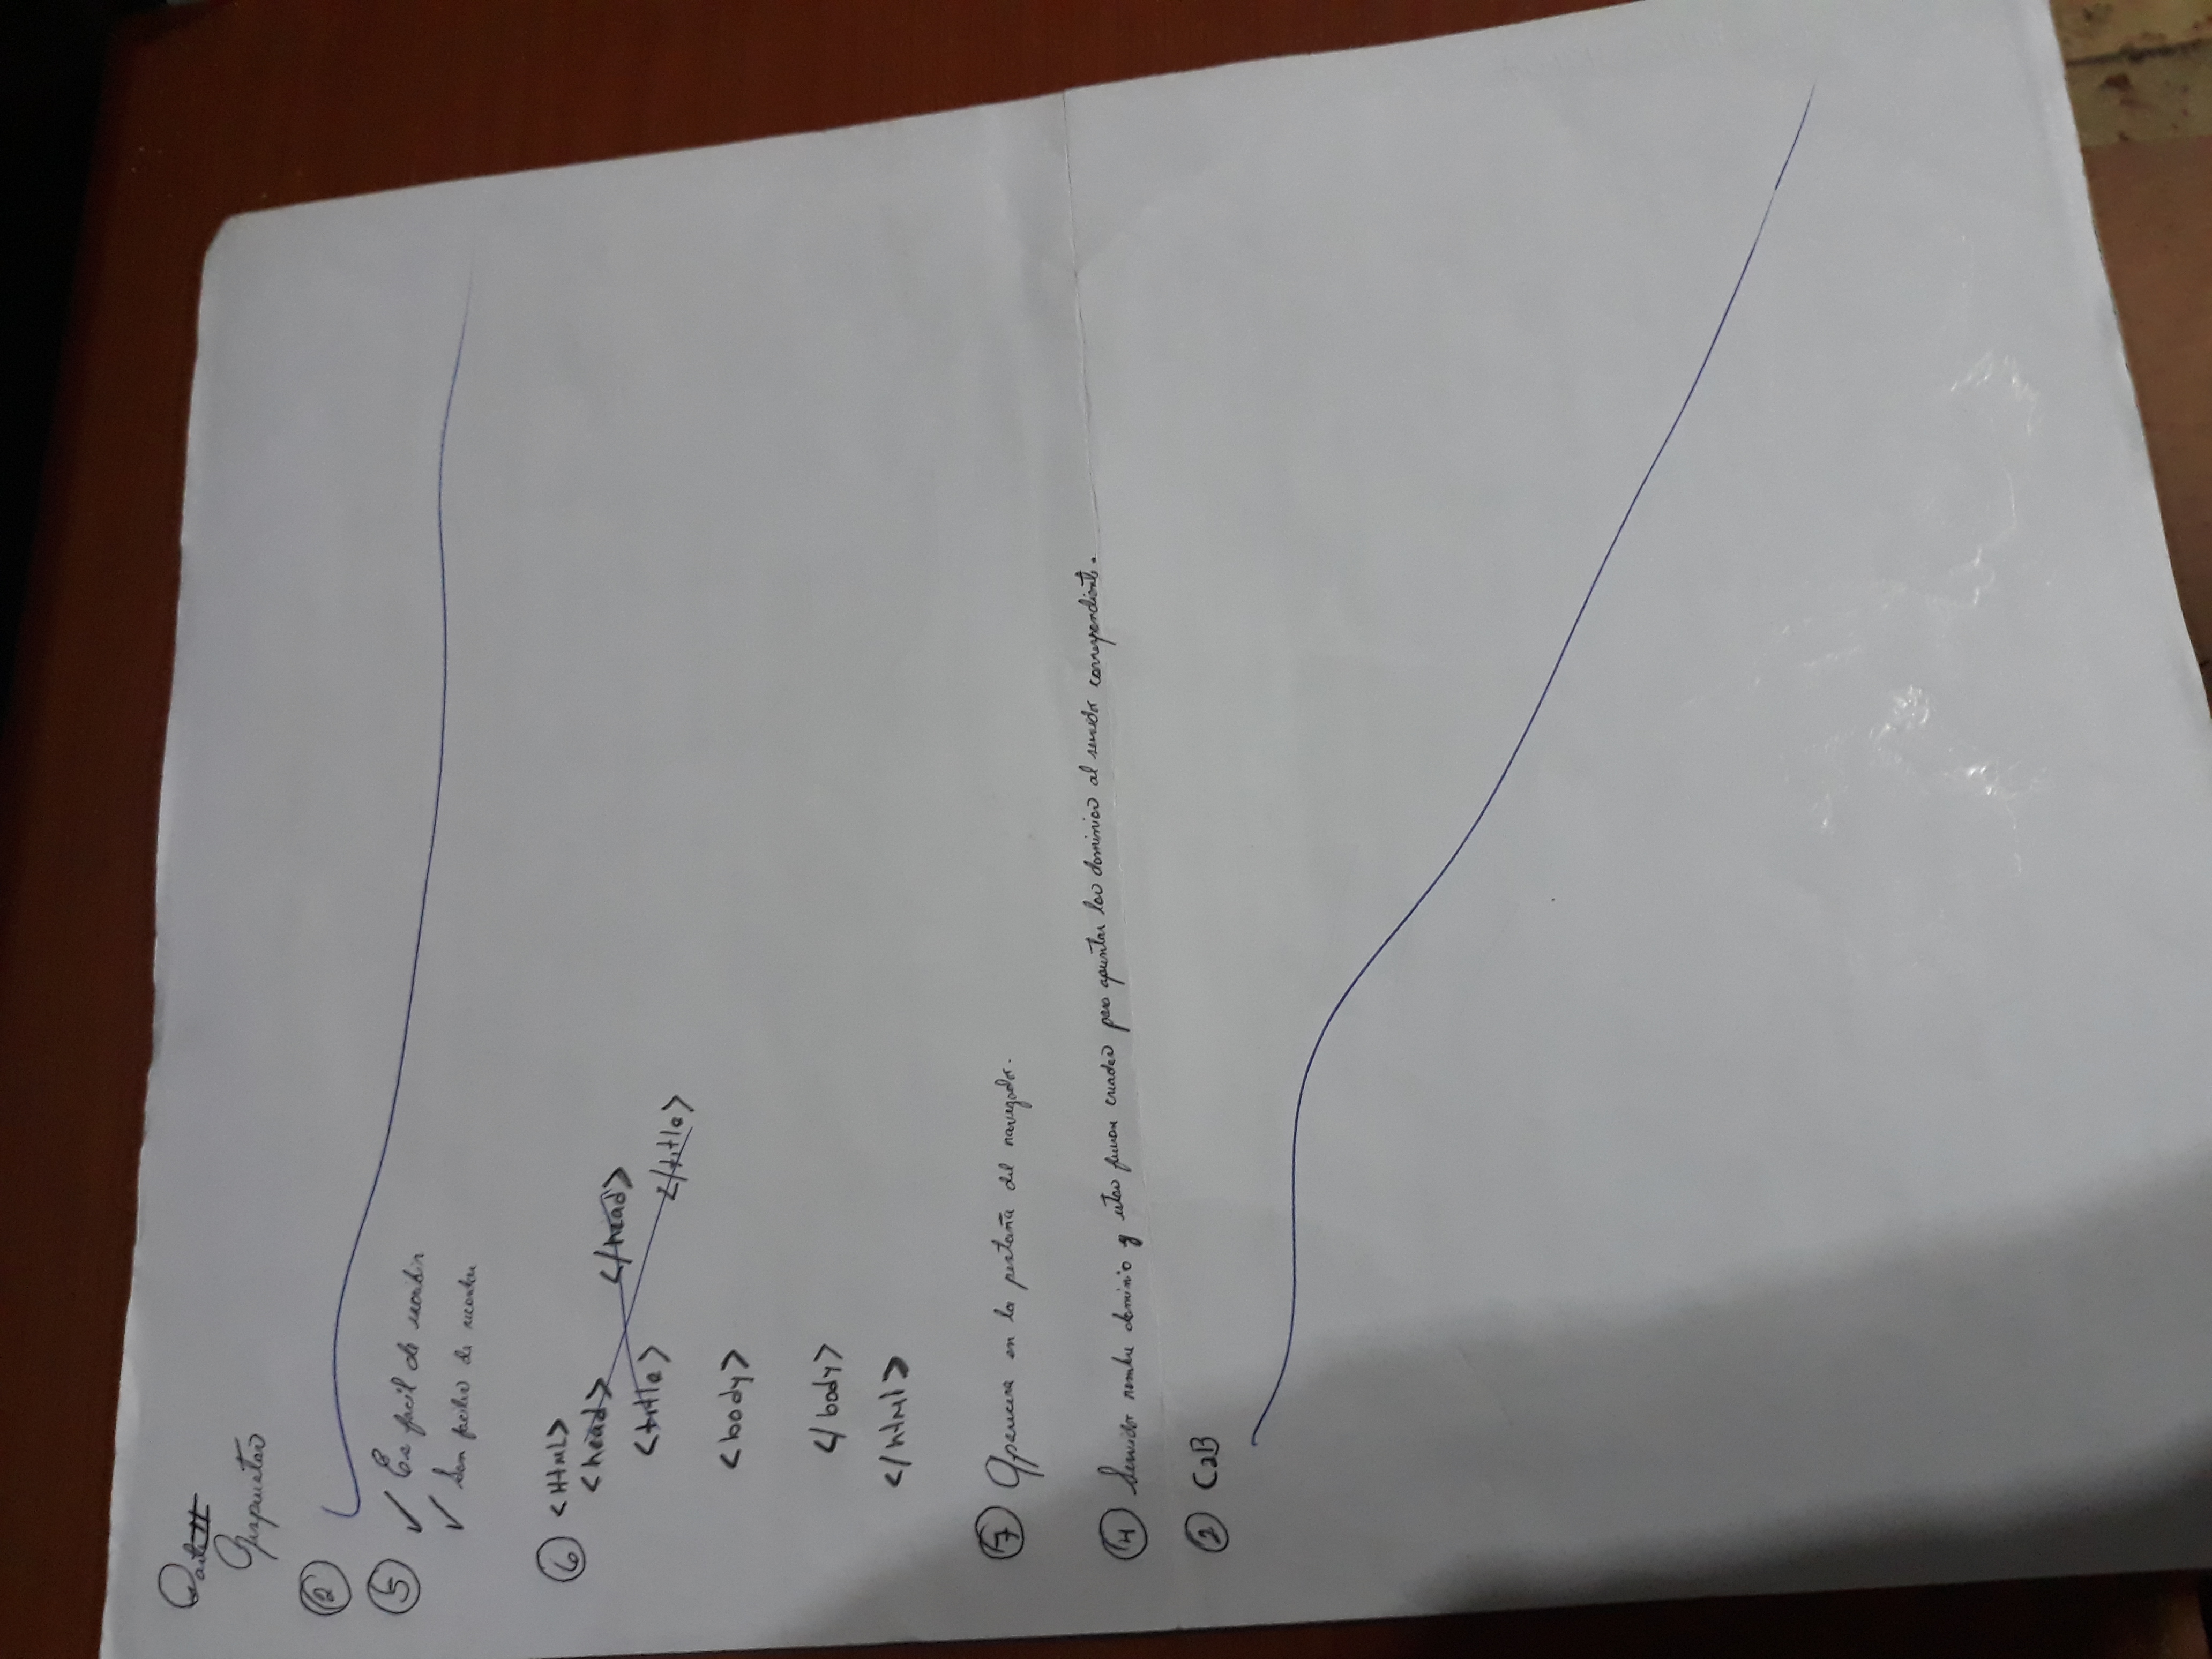 Parte II
Respuestas
②
⑤ ✓ Es facil de escribir
✓ Son faciles de recordar
⑥ <HTML>
<head> </head>
<title> </title>
<body>
</body>
</html>
⑦ Aparecera en la pestaña del navegador.
④ Servidor nombre dominio y estos fueron creados para apuntar los dominios al servidor correspondiente.
② C2B